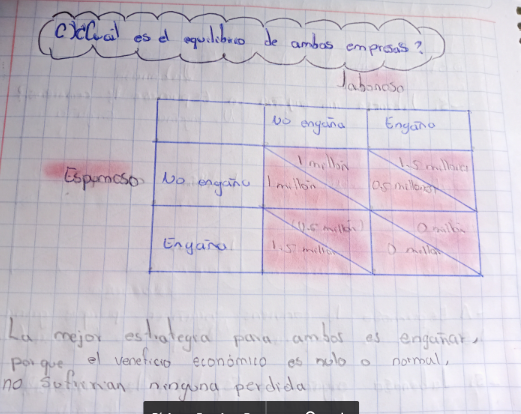 c) ¿Cuál es el equilibrio de ambas empresas?
Jabonoso
No engaña Engaña
Espumoso No engaña 1 millón 1 millón 1.5 millones 0.5 millones
Engaña (0.5 millón) 1.5 millón 0 millón 0 millón
La mejor estrategia para ambos es engañar,
porque el veneficio económico es nulo o normal,
no sufrirían ninguna perdida